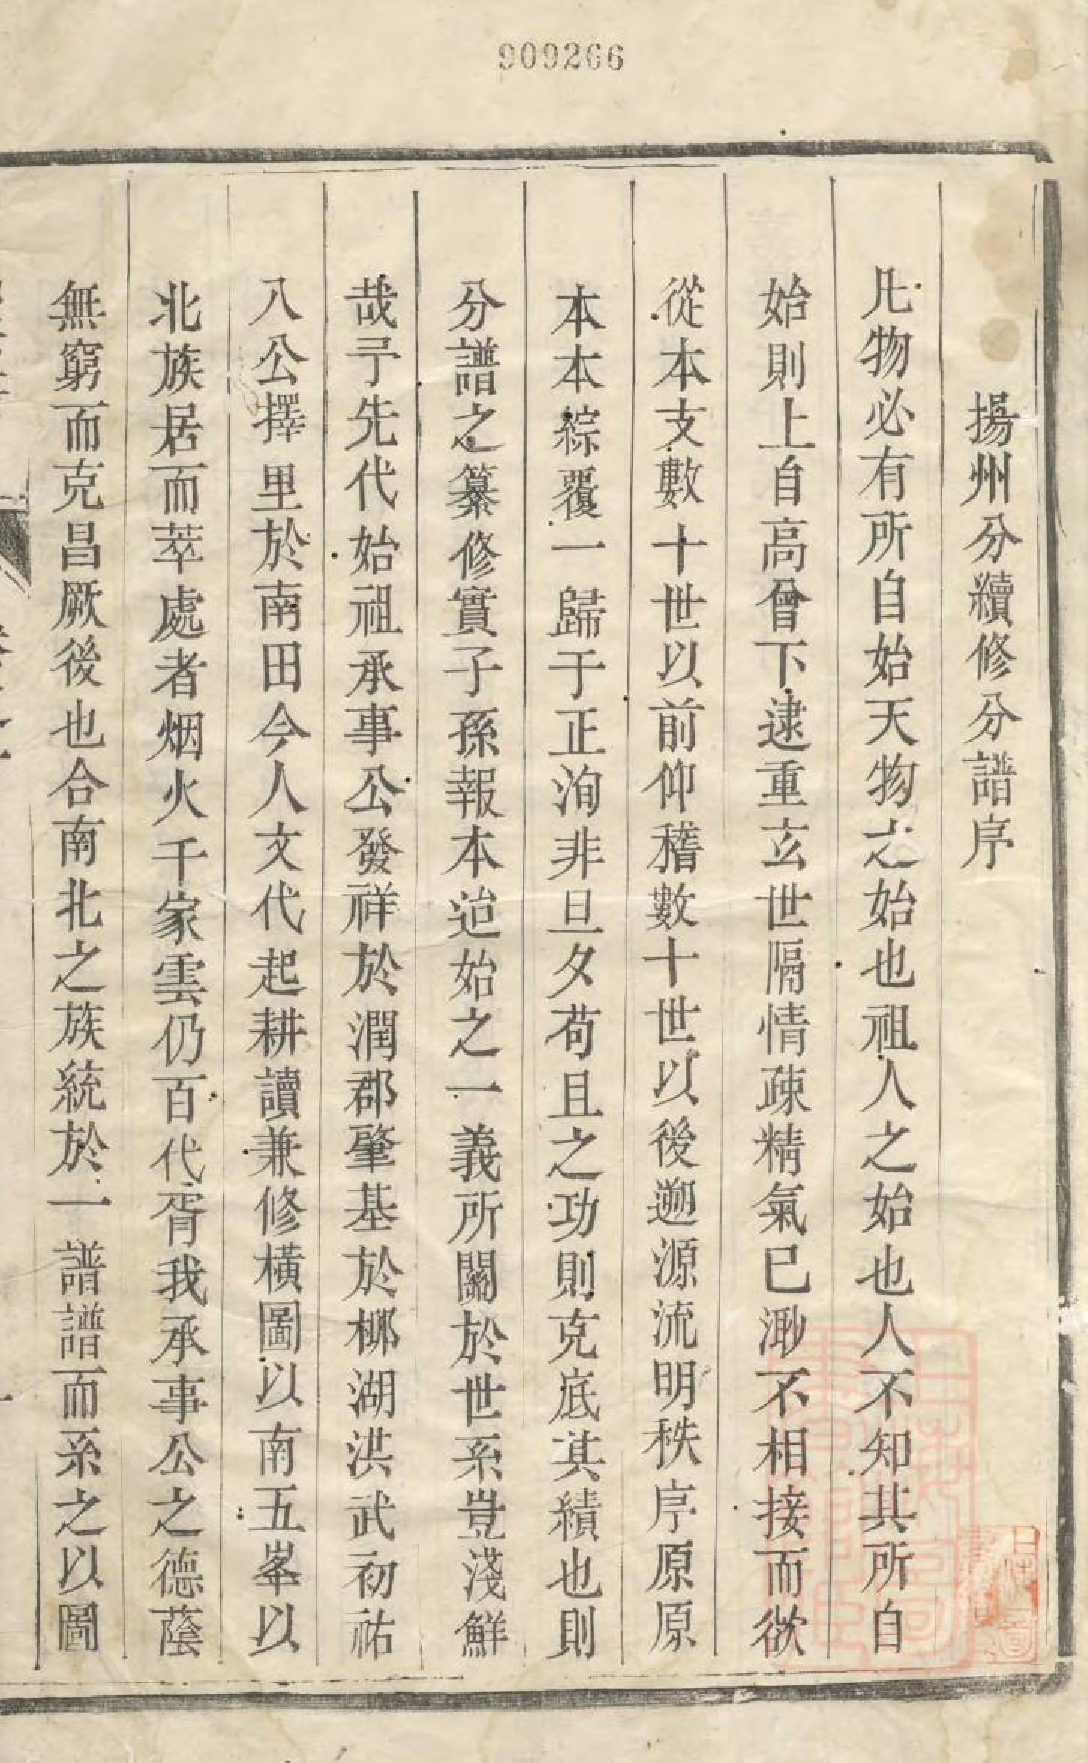 909266
揚州分續修分譜序
凡物必有所自始天物之始也祖人之始也人不知其所自
始則上自高曾下逮重玄世隔情疎精氣已渺不相接而欲
從本支數十世以前仰稽數十世以後遡源流明秩序原原
本本綜覈一歸于正洵非旦夕苟且之功則克底其績也則
分譜之纂修實子孫報本追始之一義所關於世系豈淺鮮
哉予先代始祖承事公發祥於潤郡肇基於椰湖洪武初祐
八公擇里於南田今人文代起耕讀兼修橫圖以南五峯以
北族居而萃處者烟火千家雲仍百代胥我承事公之德蔭
無窮而克昌厥後也合南北之族統於一譜譜而系之以圖